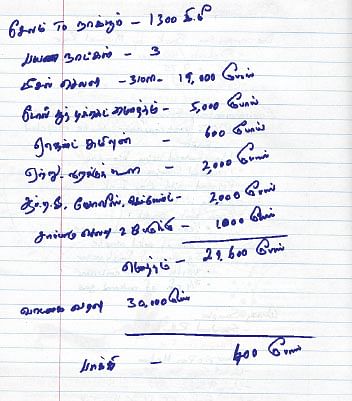 சேலம் To நாக்பூர் - 1300 கி.மீ
பயண நாட்கள் - 3
டீசல் செலவு - 310லி - 19,000 ரூபாய்
டோல் கேட் - 5,000 ரூபாய்
ஏஜெண்ட் கமிஷன் - 600 ரூபாய்
ஏற்று இறக்கு கூலி - 2,000 ரூபாய்
ஆர்.டி.ஓ. போலீஸ், - 2,000 ரூபாய்
சாப்பாடு செலவு 2 பேருக்கு - 1000 ரூபாய்
மொத்தம் - 29,600 ரூபாய்
வாடகை வரவு 30,000 ரூபாய்
பாக்கி - 400 ரூபாய்